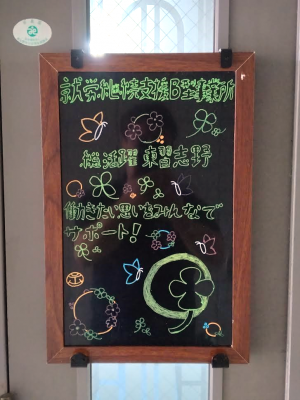 就労継続支援B型事業所
総活躍 東習志野
働きたい思いをみんなで
サポート!